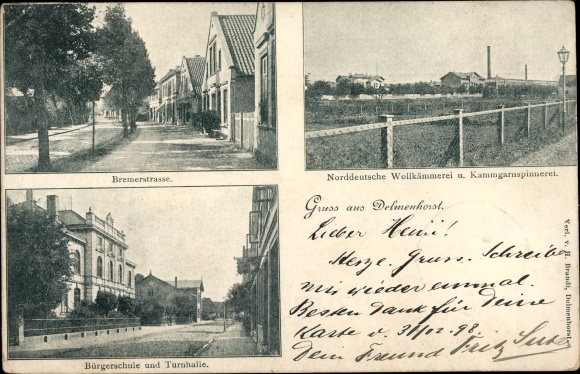 Bremerstrasse.
Norddeutsche Wollkämmerei u. Kammgarnspinnerei.
Bürgerschule und Turnhalle.
Gruss aus Delmenhorst.
Lieber Heini!
Herzl. Gruss. Schreibe
mir wieder einmal.
Besten Dank für Deine
Karte v. 31/12 98.
Dein Freund Fritz
Verl. v. H. Brandt, Delmenhorst.